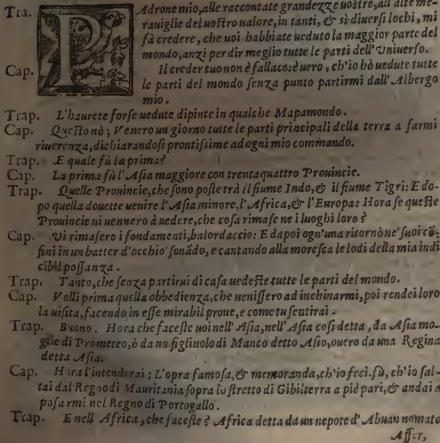 Tra. PAdrone mio, alle raccontate grandezze uostre, all'alte me-
rauiglie del uostro ualore, in tanti, & sì diuersi lochi, mi
fà credere, che uoi habbiate ueduto la maggior parte del
mondo, anzi per dir meglio tutte le parti dell'Vniuerso.
Cap. Il creder tuo non è fallace: è uero, ch'io hò uedute tutte
le parti del mondo senza punto partirmi dall'Albergo
mio.
Trap. L'haurete forse uedute dipinte in qualche Mapamondo.
Cap. Questo nò; Venero un giorno tutte le parti principali della terra a farmi
riuerenza, dichiarandosi prontissime ad ogni mio commando.
Trap. E quale fù la prima?
Cap. La prima fù l'Asia maggiore con trentaquattro Prouincie.
Trap. Quelle Prouincie, che sono poste trà il fiume Indo, & il fiume Tigri: E do-
po quella douette uenire l'Asia minore, l'Africa, & l'Europa: Hora se queste
Prouincie ui uennero à uedere, che cosa rimase ne i luoghi loro?
Cap. Vi rimasero i fondamenti, balordaccio: E dapoi ogn'una ritornò ne' suoi cō-
fini in un batter d'occhio sonādo, e cantando alla moresca le lodi della mia indi
cibil possanza.
Trap. Tanto, che senza partirui di casa uedeste tutte le parti del mondo.
Cap. Volli prima quella obbedienza, che uenissero ad inchinarmi, poi rendei loro
la uisita, facendo in esse mirabil proue, e come tu sentirai.
Trap. Buono. Hora che faceste uoi nell'Asia, nell'Asia così detta, da Asia mo-
glie di Prometeo, ò da un figliuolo di Maneo detto Asio, ouero da una Regina
detta Asia.
Cap. Hora l'intenderai; L'opra famosa, & memoranda, ch'io feci, fù, ch'io sal-
tai dal Regno di Mauritania sopra lo stretto di Gibilterra a piè pari, & andai a
posarmi nel Regno di Portogallo.
Trap. E nell'Africa, che faceste? Africa detta da un nepote d'Abuan nomato
Affer,